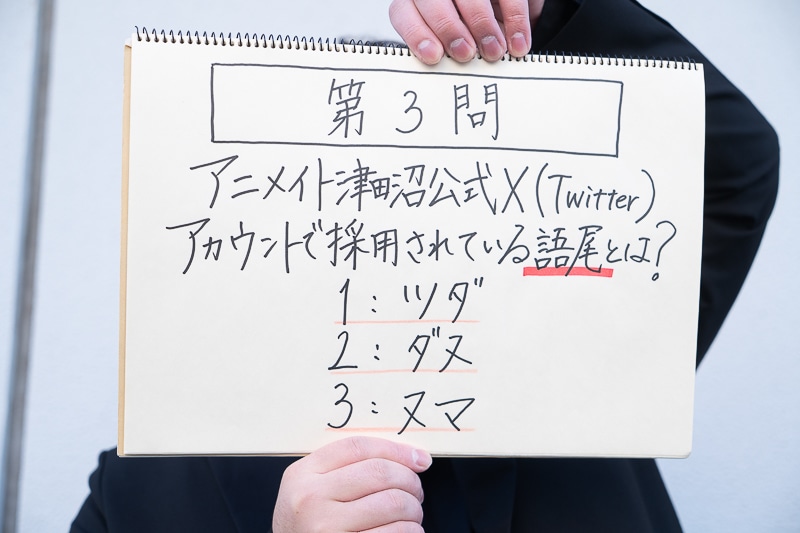 第3問
アニメイト津田沼公式X(Twitter)
アカウントで採用されている語尾とは?
1:ツダ
2:ダヌ
3:ヌマ